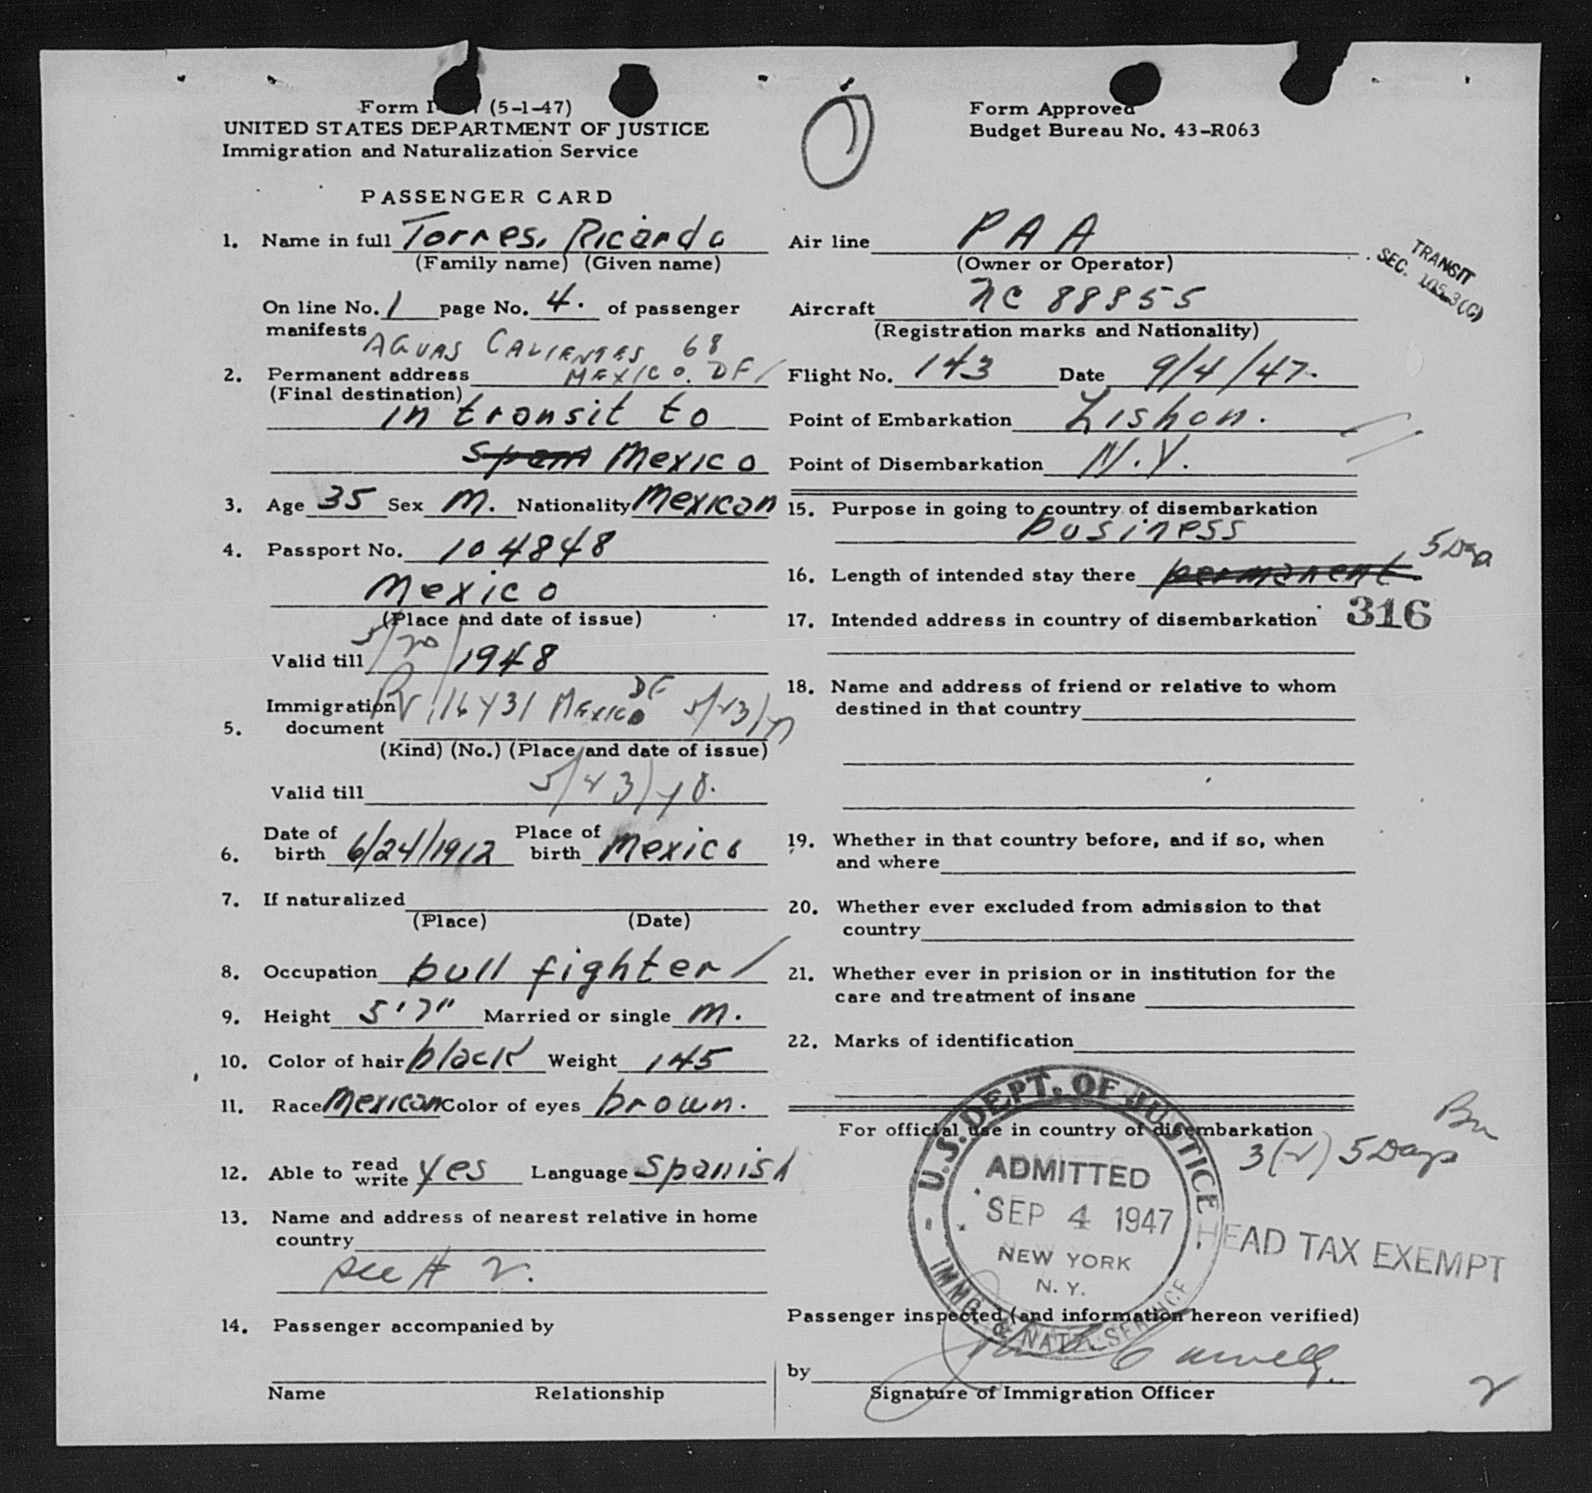 Form I (5-1-47)
UNITED STATES DEPARTMENT OF JUSTICE
Immigration and Naturalization Service
PASSENGER CARD
1. Name in full Torres, Ricardo
(Family name) (Given name)
On line No. 1 page No. 4. of passenger
manifests
AGUAS CALIENTES 68
2. Permanent address MEXICO. DF
(Final destination)
in transit to
Spain Mexico
3. Age 35 Sex M. Nationality Mexican
4. Passport No. 104848
Mexico
(Place and date of issue)
Valid till 5/20/1948
Immigration
5. document MEXICO DF
(Kind) (No.) (Place and date of issue)
Valid till
6. Date of birth 6/24/1912 Place of birth Mexico
7. If naturalized
(Place) (Date)
8. Occupation bull fighter
9. Height 5'7" Married or single M.
10. Color of hair black Weight 145
11. Race Mexican Color of eyes brown.
12. Able to read write yes Language Spanish
13. Name and address of nearest relative in home
country
see # 2.
14. Passenger accompanied by
Name Relationship
Form Approved
Budget Bureau No. 43-R063
Air line PAA
(Owner or Operator)
TRANSIT
SEC. 105.3(C)
Aircraft NC 88855
(Registration marks and Nationality)
Flight No. 143 Date 9/4/47.
Point of Embarkation Lisbon.
Point of Disembarkation N.Y.
15. Purpose in going to country of disembarkation
business
16. Length of intended stay there permanent 5 Days
17. Intended address in country of disembarkation 316
18. Name and address of friend or relative to whom
destined in that country
19. Whether in that country before, and if so, when
and where
20. Whether ever excluded from admission to that
country
21. Whether ever in prision or in institution for the
care and treatment of insane
22. Marks of identification
For official use in country of disembarkation
3(2) 5 Days
U.S. DEPT. OF JUSTICE
ADMITTED
SEP 4 1947
NEW YORK
N. Y.
IMMG. & NATZ. SERVICE
HEAD TAX EXEMPT
Passenger inspected (and information hereon verified)
by
Signature of Immigration Officer
2